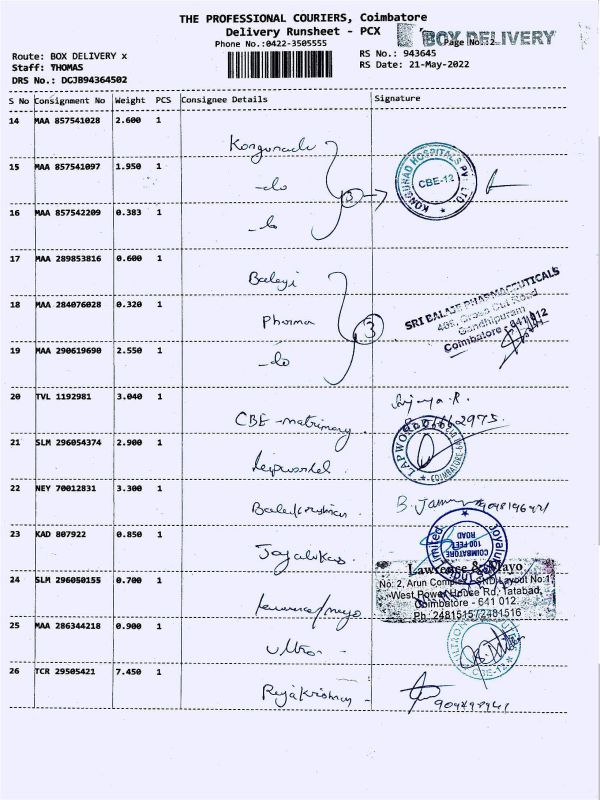 THE PROFESSIONAL COURIERS, Coimbatore
Delivery Runsheet - PCX
Phone No.:0422-3505555
BOX DELIVERY
Page No.:2
Route: BOX DELIVERY x
Staff: THOMAS
DRS No.: DCJB94364502
RS No.: 943645
RS Date: 21-May-2022
S No Consignment No Weight PCS Consignee Details Signature
14 MAA 857541028 2.600 1
KONGUNAD HOSPITALS PVT. LTD.
CBE-12
15 MAA 857541097 1.950 1
-do
16 MAA 857542209 0.383 1
17 MAA 289853816 0.600 1
Balaji
SRI BALAJI PHARMACEUTICALS
Cross Cut Road
Gandhipuram
Coimbatore - 641 012
18 MAA 284076028 0.320 1
Pharma
3
19 MAA 290619690 2.550 1
-do
20 TVL 1192981 3.040 1
CBE -matrimony.
21 SLM 296054374 2.900 1
22 NEY 70012831 3.300 1
Balakrishnan
23 KAD 807922 0.850 1
Joyalukkas
COIMBATORE
100 FEET
ROAD
24 SLM 296050155 0.700 1
Lawrence/mayo
Lawrence & Mayo
No: 2, Arun Complex, SND Layout No:1
West Power House Rd, Tatabad,
Coimbatore - 641 012.
Ph: 2481515 / 2481516
25 MAA 286344218 0.900 1
Ultra -
26 TCR 29505421 7.450 1
Rajakrishnan -